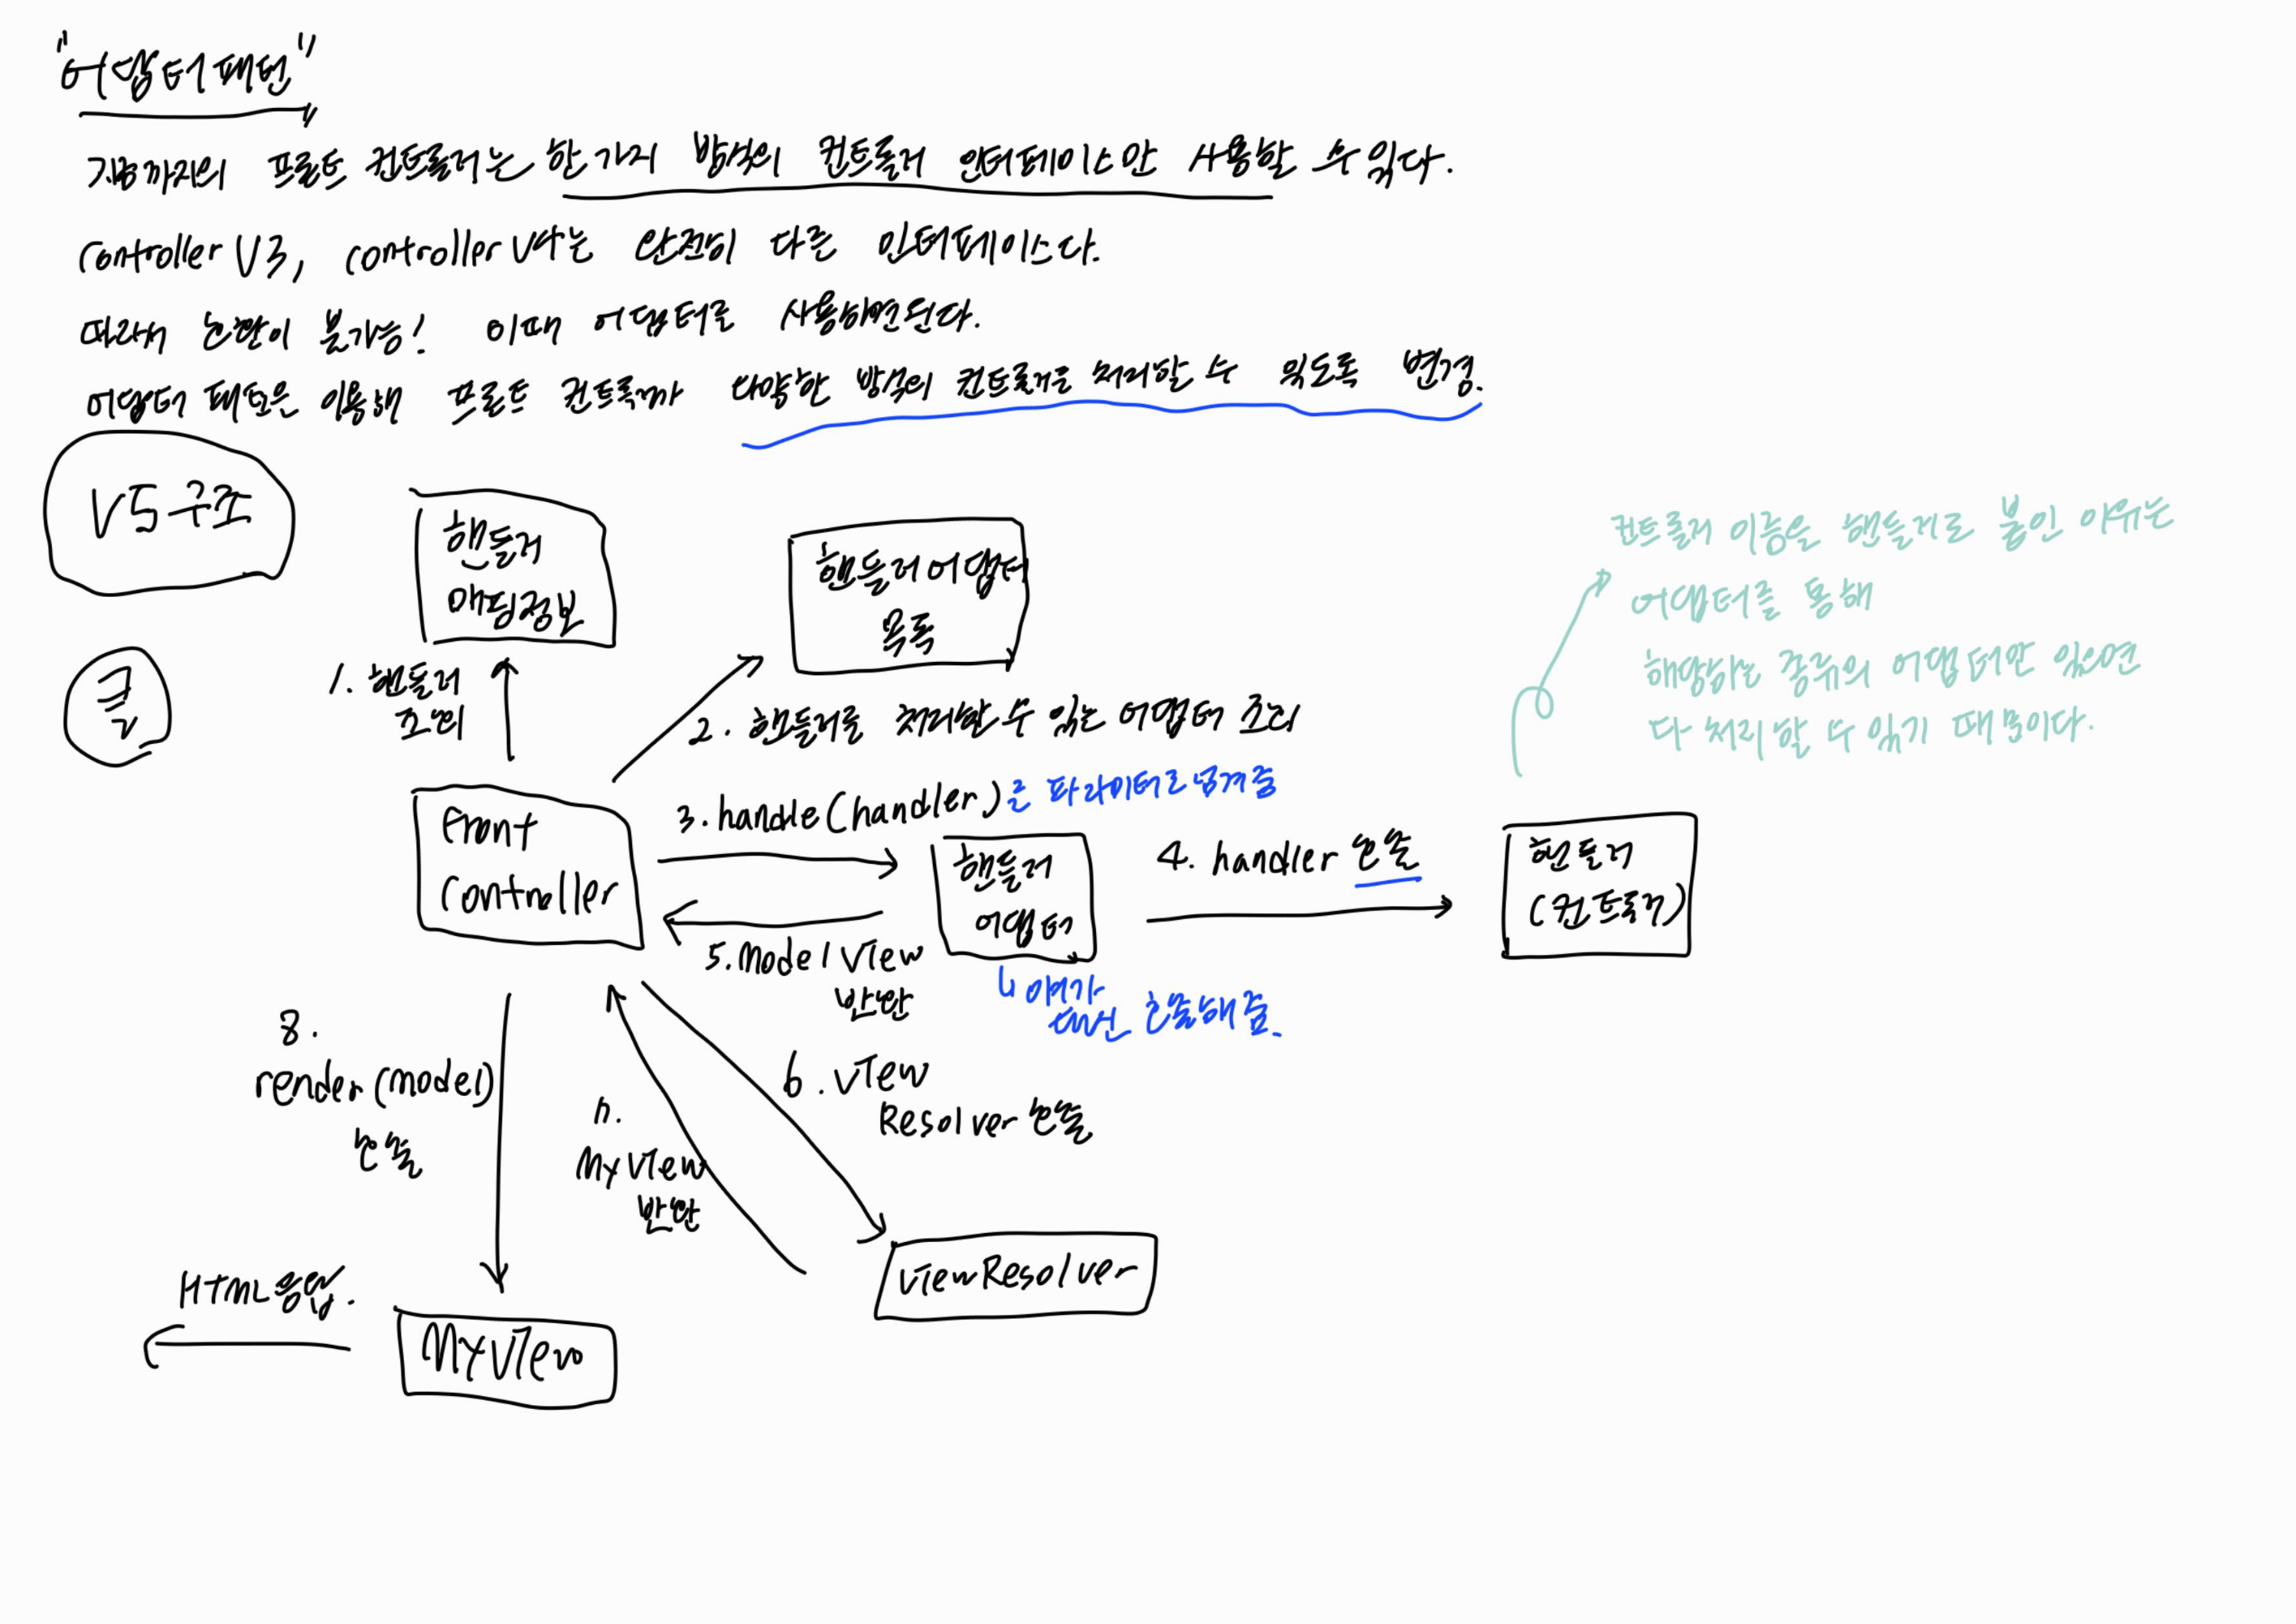 "어댑터 패턴"
지금까지의 프론트 컨트롤러는 한가지 방식의 컨트롤러 인터페이스만 사용할 수 있다.
Controller V3, controller V4는 완전히 다른 인터페이스다.
따라서 호환이 불가능! 이때 어댑터를 사용하면된다.
어댑터 패턴을 이용해 프론트 컨트롤러가 다양한 방식의 컨트롤러를 처리할 수 있도록 변경.
V5 구조
핸들러
매핑정보
핸들러 어댑터
목록
컨트롤러 이름을 핸들러로 붙인 이유는
어댑터를 통해
해당하는 종류의 어댑터만 있으면
다 처리할 수 있기 때문이다.
1. 핸들러
조회
2. 핸들러를 처리할 수 있는 어댑터 조회
Front
Controller
3. handle(handler)를 파라미터로 넘겨줌
핸들러
어댑터
4. handler 호출
핸들러
(컨트롤러)
5. Model View
반환
대신 호출해줌.
6. View
Resolver 호출
7.
MyView
반환
8.
render(model)
호출
viewResolver
HTML응답.
MyView